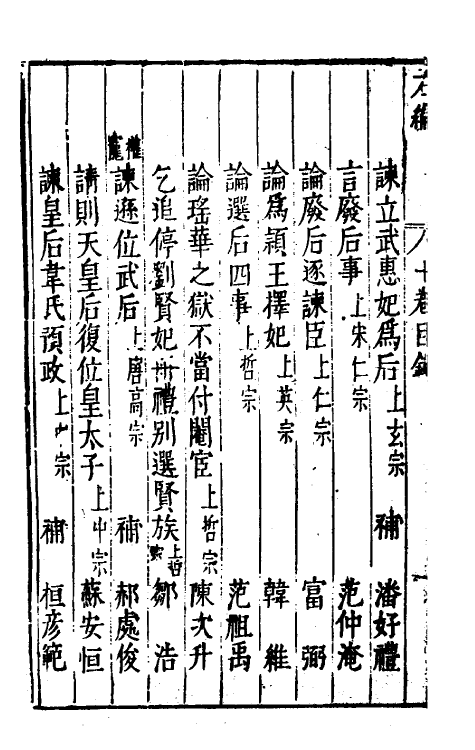 左編 十卷目錄
諫立武惠妃爲后 上玄宗 補 潘好禮
言廢后事 上宋仁宗 范仲淹
論廢后逐諫臣 上仁宗 富弼
論爲穎王擇妃 上英宗 韓維
論選后四事 上哲宗 范祖禹
論瑤華之獄不當付閹宦 上哲宗 陳次升
乞追停劉賢妃冊禮別選賢族 上哲宗 鄒浩
權寵
諫遜位武后 上唐高宗 補 郝處俊
請則天皇后復位皇太子 上中宗 蘇安恒
諫皇后韋氏預政 上中宗 補 桓彦範